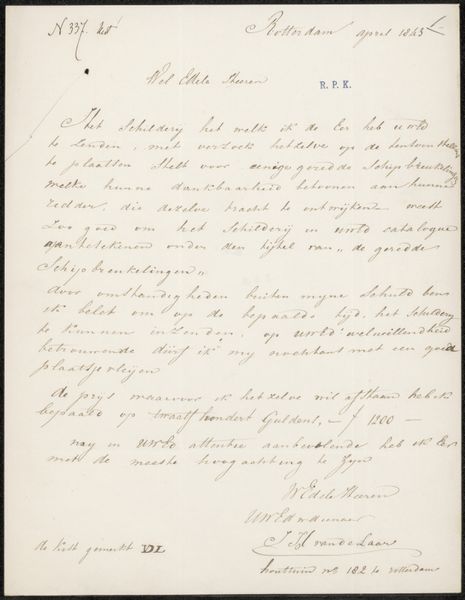 N 337. Rotterdam april 1843
Wel Edele Heeren
R. P. K.
Het Schilderij het welk ik de Eer heb uwld
te Zenden, met verzoek hetzelve op de tentoon stelling
te plaatsen Stelt voor eenige geredde Schipbreukelingen
welke hunne dankbaarheid betoonen aan hunne
redder, die dezelve tracht te ontwijken weest
Zoo goed om het Schilderij in uwld catalogue
aan te tekenen onder den tijtel van „ de geredde
Schipbreukelingen „
door omstandigheden buiten myne Schuld ben
ik belet om op de bepaalde tijd, het Schilderij
te kunnen inzenden, op uwld welwillendheid
betrouwende durf ik my met een goed
plaatsje vleijen
de prijs waarvoor ik hetzelve wil afstaan heb ik
bepaald op twaalf hondert Guldens, — ƒ 1200 —
my in UWEd attentie aanbevelende heb ik Eer
met de meeste hoogachting te Zyn
WEdele Heeren
UWEd w dienaar
J H van de Laar
houttuin no 182 te rotterdam
de kist gemerkt VDL